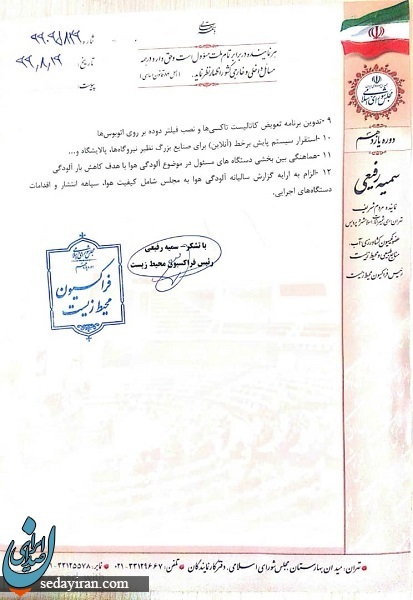 هر نماینده در برابر تمام ملت مسؤول است و حق دارد در همه
مسائل داخلی و خارجی کشور اظهارنظر نماید.
شماره
تاریخ: ۹۹,۸,۱۹
پیوست
مجلس شورای اسلامی
دوره یازدهم
سمیه رفیعی
نماینده مردم شریف
رئیس فراکسیون محیط زیست
۹- تدوین برنامه تعویض کاتالیست تاکسی‌ها و نصب فیلتر دوده بر روی اتوبوس‌ها
۱۰- استقرار سیستم پایش برخط (آنلاین) برای صنایع بزرگ نظیر نیروگاه‌ها، پالایشگاه و...
۱۱- هماهنگی بین بخشی دستگاه های مسئول در موضوع آلودگی هوا با هدف کاهش بار آلودگی
۱۲- الزام به ارایه گزارش سالیانه آلودگی هوا به مجلس شامل کیفیت هوا، سیاهه انتشار و اقدامات
دستگاه‌های اجرایی.
با تشکر- سمیه رفیعی
رئیس فراکسیون محیط زیست
فراکسیون
محیط زیست
تهران: میدان بهارستان مجلس شورای اسلامی. دفتر کار نمایندگان تلفن: ۳۳۱۲۹۶۶۷-۰۲۱ نمابر: ۳۳۱۲۵۵۷۸
صدای ایران
sedayiran.com